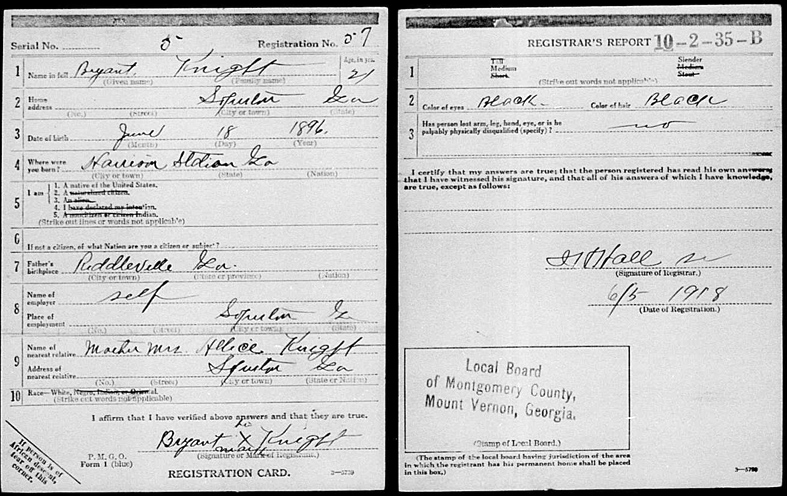 Serial No. 5 Registration No. 57
1 Name in full Bryant Knight Age, in yrs. 21
(Given name) (Family name)
2 Home address Soperton Ga
(No.) (Street) (City or town) (State)
3 Date of birth June 18 1896.
(Month) (Day) (Year)
4 Where were you born? Harrison Station Ga
(City or town) (State) (Nation)
5 I am 1. A native of the United States.
2. A naturalized citizen.
3. An alien.
4. I have declared my intention.
5. A noncitizen or citizen Indian.
(Strike out lines or words not applicable)
6 If not a citizen, of what Nation are you a citizen or subject?
7 Father's birthplace Riddleville Ga.
(City or town) (State or province) (Nation)
8 Name of employer self
Place of employment Soperton Ga
(No.) (Street) (City or town) (State)
9 Name of nearest relative Mother Mrs. Allice Knight
Address of nearest relative Ga
(No.) (Street) (City or town) (State or Nation)
10 Race—White, Negro, Indian, or Oriental.
(Strike out words not applicable)
I affirm that I have verified above answers and that they are true.
his
Bryant X Knight
mark
(Signature or Mark of Registrant.)
P. M. G. O.
Form 1 (blue)
REGISTRATION CARD.
3—5739
If person is of
African descent,
tear off this
corner.
REGISTRAR'S REPORT 10-2-35-B
1 Tall Slender
Medium Medium
Short Stout
(Strike out words not applicable)
2 Color of eyes Black Color of hair Black
3 Has person lost arm, leg, hand, eye, or is he palpably physically disqualified (specify)? no
I certify that my answers are true; that the person registered has read his own answers;
that I have witnessed his signature, and that all of his answers of which I have knowledge,
are true, except as follows:
Hall
(Signature of Registrar.)
6/5 1918
(Date of Registration.)
Local Board
of Montgomery County,
Mount Vernon, Georgia.
(Stamp of Local Board.)
(The stamp of the local board having jurisdiction of the area
in which the registrant has his permanent home shall be placed
in this box.)
3—5739